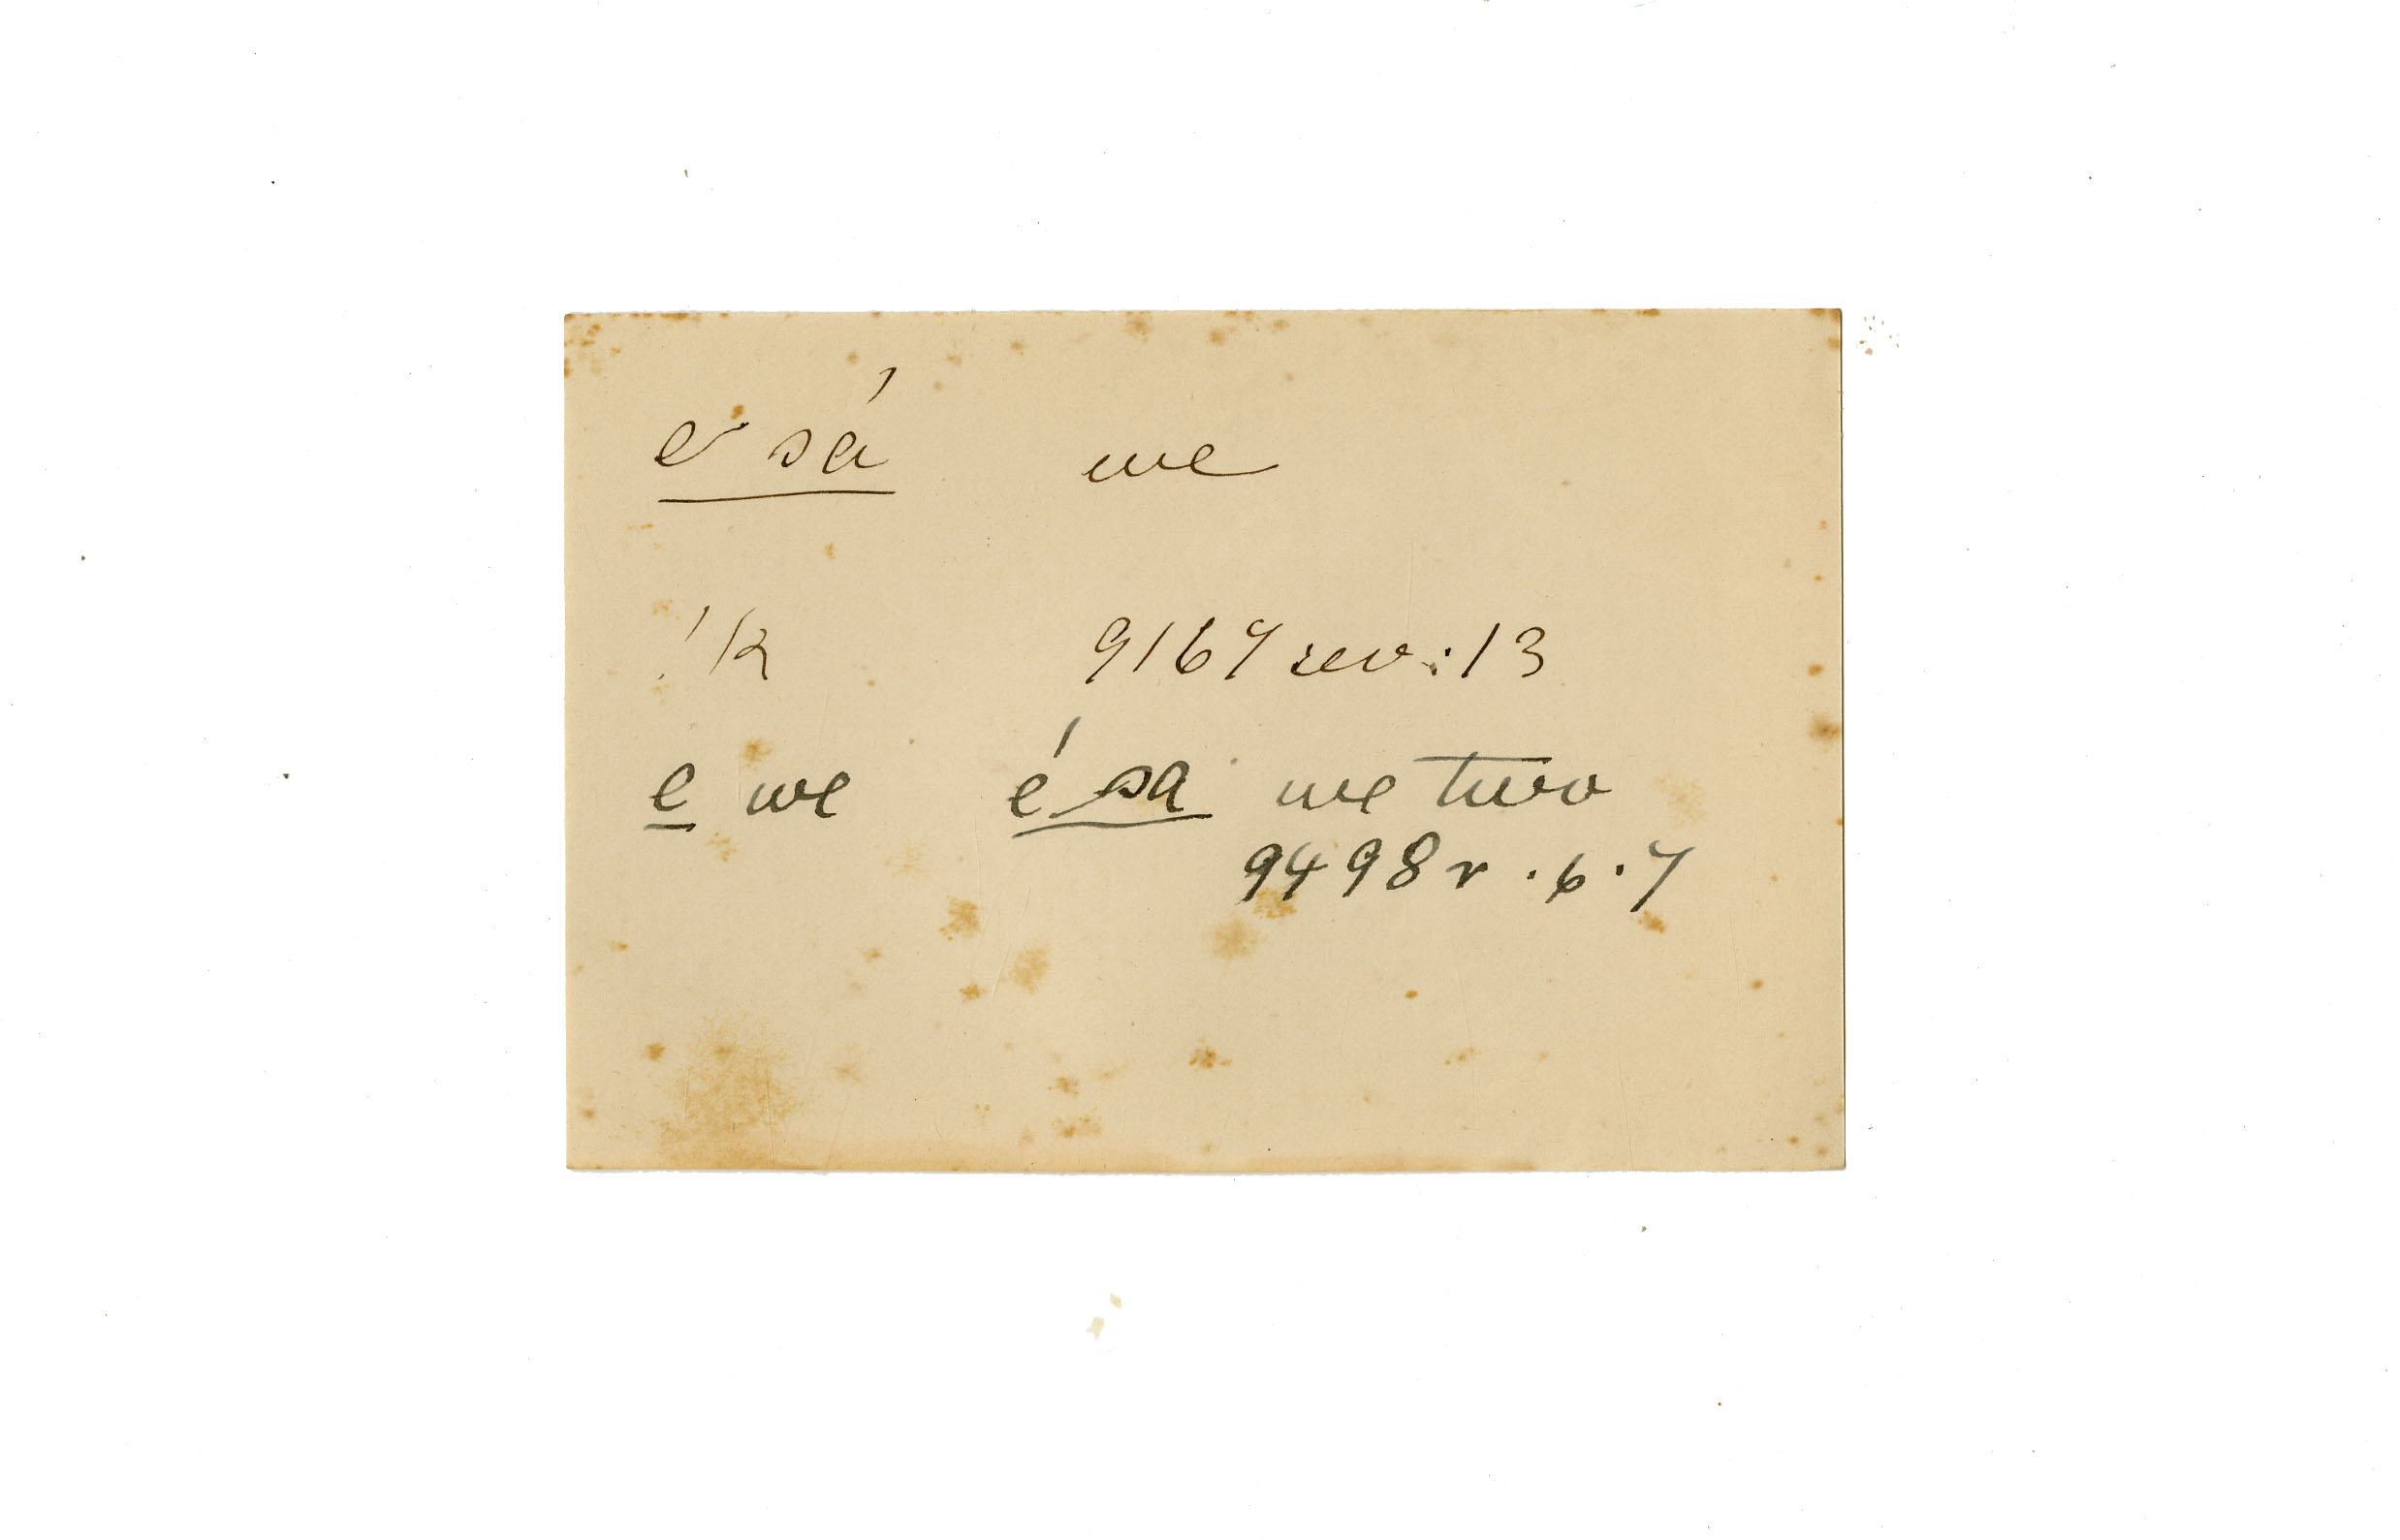 e sá we
!k 9167 rev: 13
e we é sa we two
9498 r. 6. 7